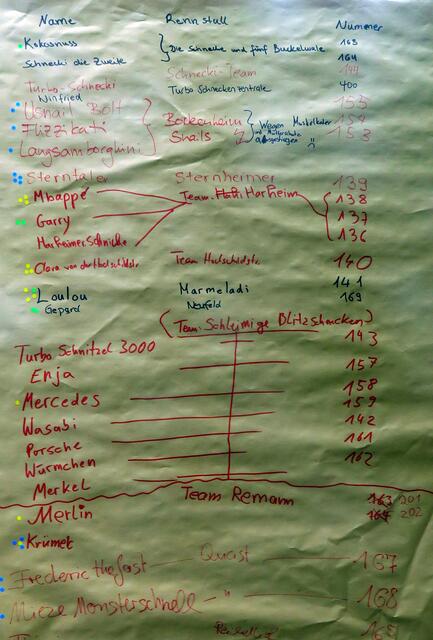 Name Rennstall Nummer
Kokosnuss Die Schnecke und fünf Buckelwale 163
Schnecki die Zweite 164
Turbo Schnecki Schnecki-Team 144
Winfried Turbo Schneckenzentrale 400
Usnail Bolt 155
Flizzikati Bockenheim Snails Wegen Muskelkater 154
Langsamborghini 153
Sterntaler Sternheimer 139
Mbappé Team Harheim 138
Garry 137
Harheimer Schnicke 136
Clara von der Hochschildstr. Team Hochschildstr. 140
Loulou Marmeladi 141
Gepard Neufeld 169
(Team Schleimige Blitzschnecken)
Turbo Schnitzel 3000 143
Enja 157
Mercedes 158
Wasabi 159
Porsche 142
Würmchen 161
Merkel 162
Team Remann
Merlin 201
Krümet 202
Frederic Hofast Quast 167
Mieze Monsterschnell " 168